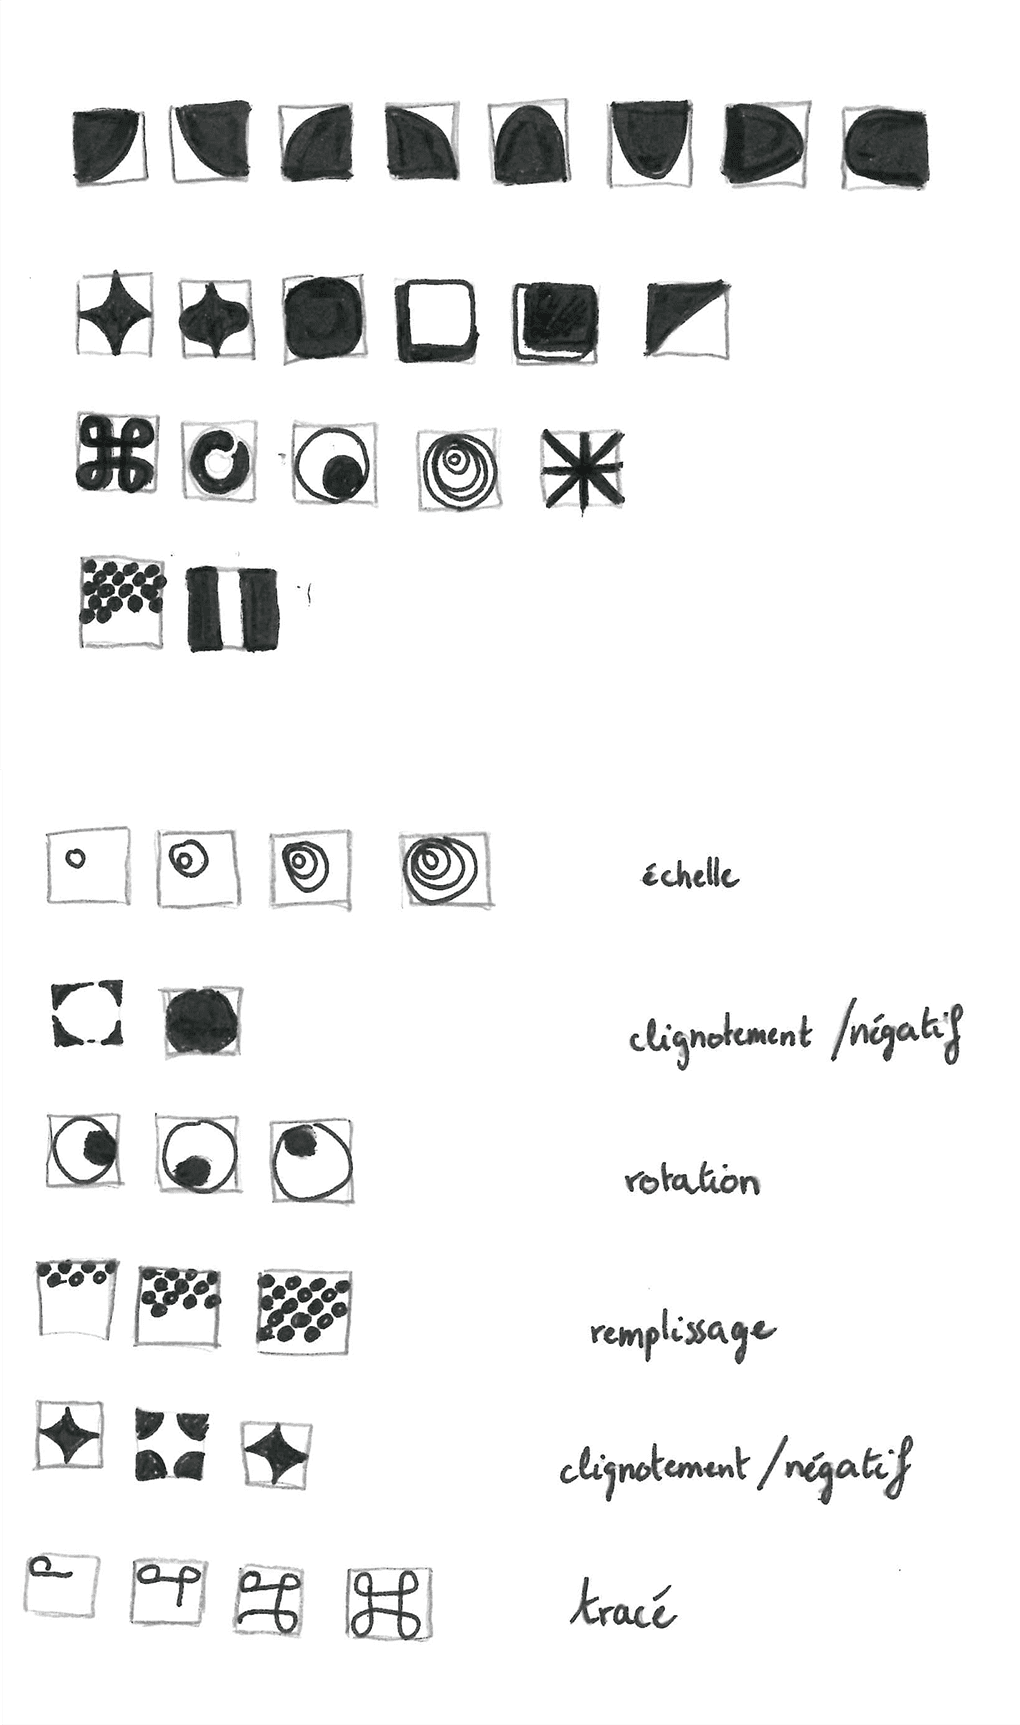 échelle
clignotement /négatif
rotation
remplissage
clignotement /négatif
tracé